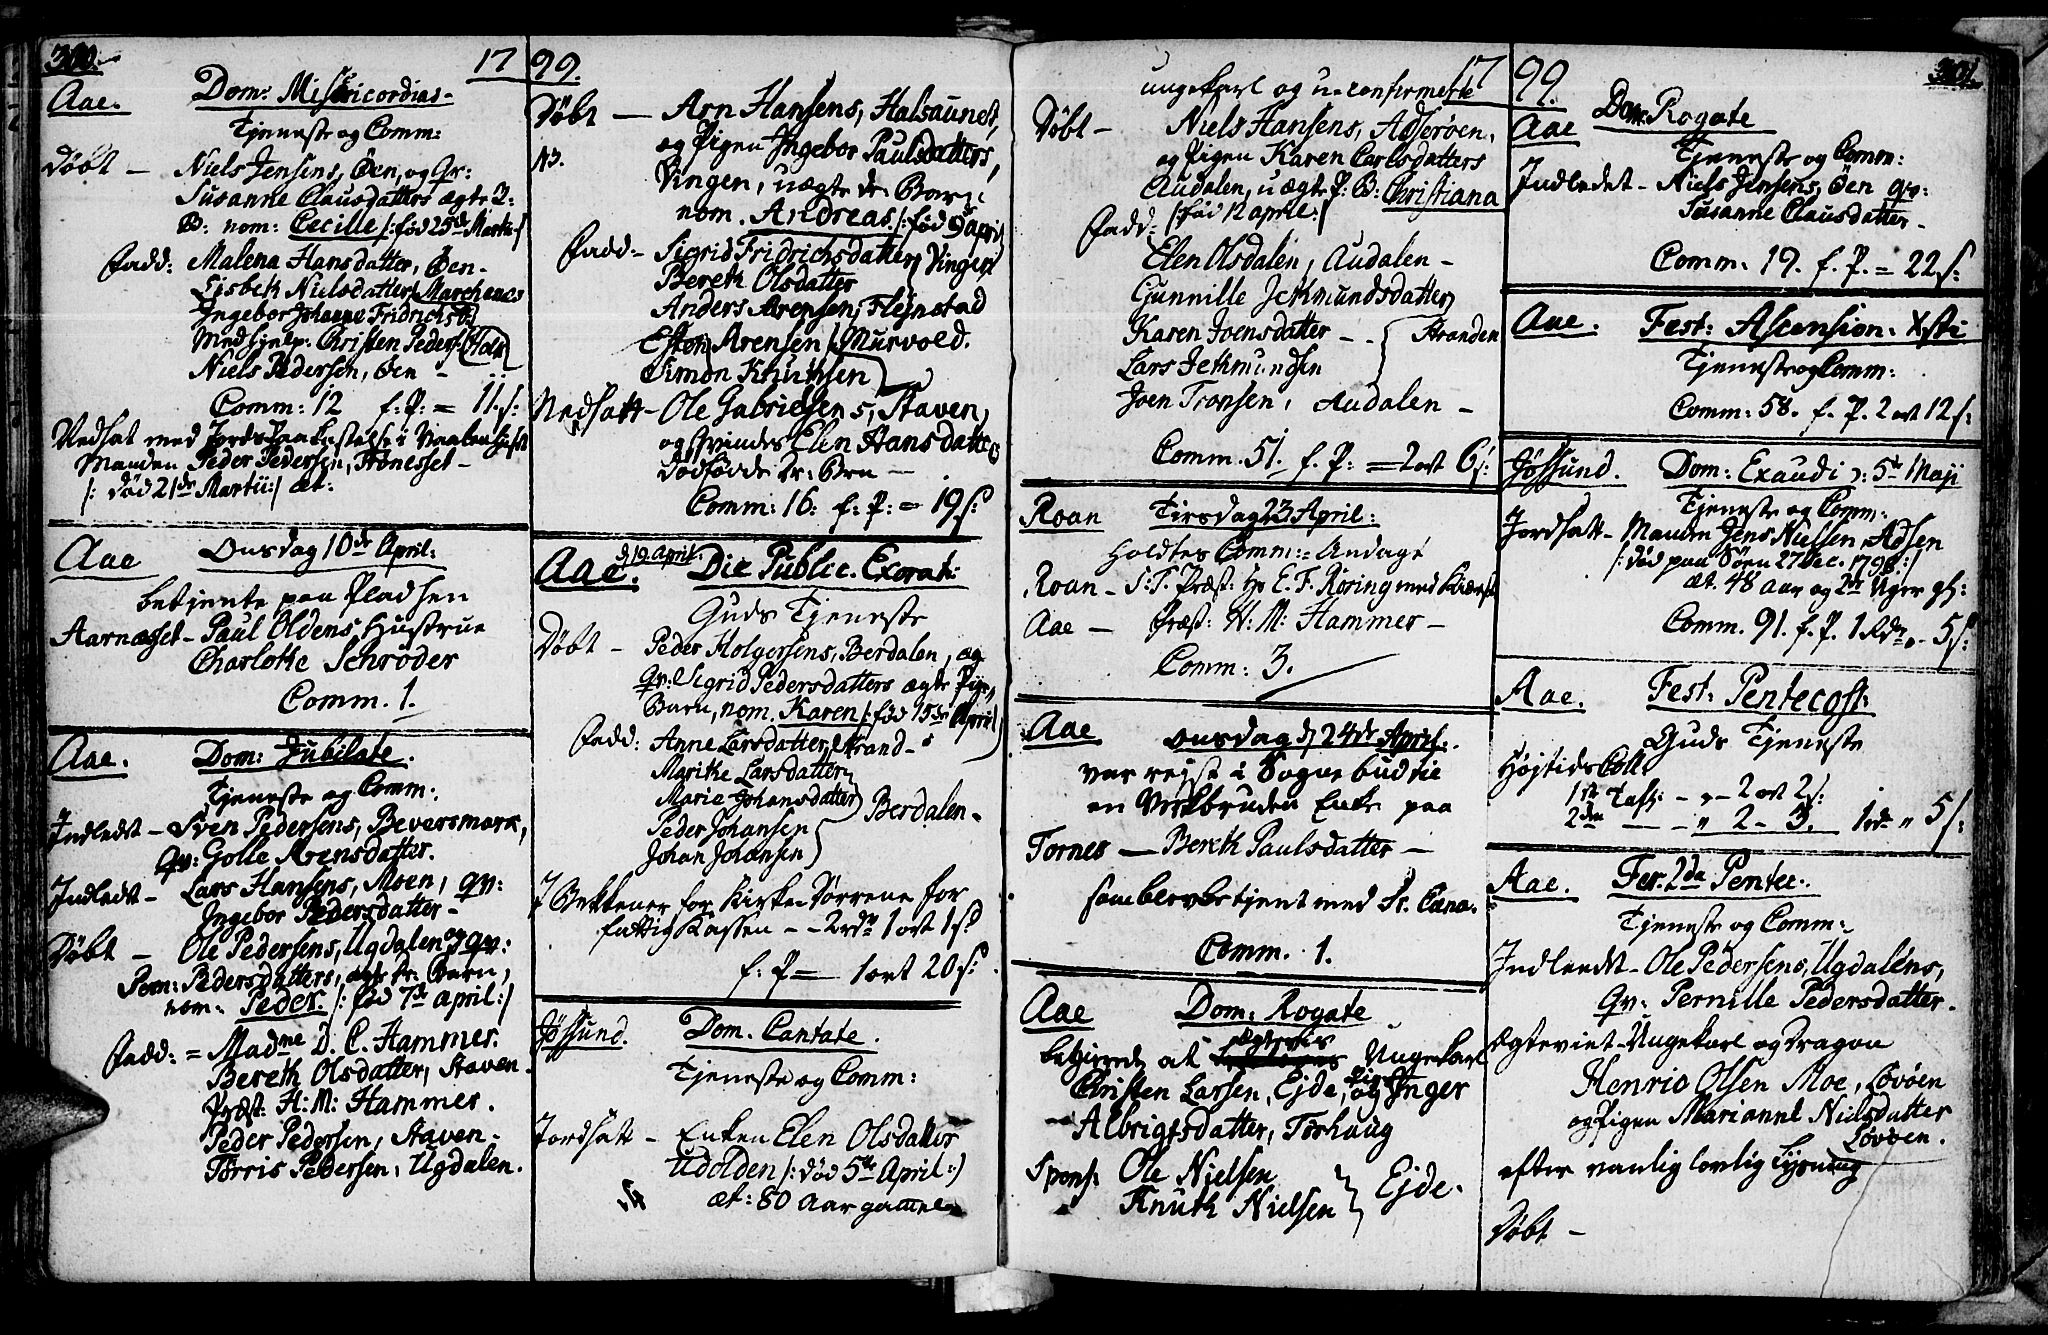 300.
17
Aae. Dom: Misericordias-
Tjeneste og Comm:
Døbt - Niels Jensens, Øen, og Qv:
Susanne Clausdatters ægte P:
B: nom: Cecille /: fød 25de Martii :/
Fadd: Malena Hansdatter, Øen-
Lisbeth Nielsdatter,
Ingebor Johanne Fridrichsd:
Medhjelp: Christen Peders:
Niels Pedersen, Øen -
Comm: 12 f: P: = 11 s:
Manden Peder Pedersen,
/: død 21de Martii :/ æt:
Aae Onsdag 10de April:
betjente paa Pladsen
Aarnæsset - Paul Oldens Hustrue
Charlotte Schrøder
Comm. 1.
Aae. Dom: Jubilate.
Tjeneste og Comm:
Indledt - Sven Pedersens, Beversmark,
Qv: Golle Arensdatter.
Indledt - Lars Hansens, Moen, qv:
Ingebor Pedersdatter -
Døbt - Ole Pedersens, Ugdalen og qv:
Pern: Pedersdatters, ægte Dr: Barn,
nom: Peder. /: fød 7de april :/
Fadd: = Madme D. C. Hammer.
Bereth Olsdatter, Staven.
Præst: H: M: Hammer.
Peder Pedersen, Staven -
Tørris Pedersen, Ugdalen.
99.
Døbt - Arn Hansens, Halsaunet,
og Pigen Ingebor Paulsdatters,
NB. Vingen, uægte dr: Barn
nom. Andreas /: fød 9de April
Fadd:- Sigrid Fridrichsdatter, Vingen
Bereth Olsdatter
Anders Arensen, Flejnstad
Eston Arensen, Murvold.
Simon Knudsen
Nedsatt - Ole Gabrielsens, Staven,
og Qvindes Elen Hansdatters
Dødfødde Dr: Brn -
Comm: 16: f: P: = 19 s:
Aae. d 19. April. Die Public. Exorat:
Guds Tjeneste
Døbt - Peder Holgersens, Berdalen, og
qv: Sigrid Pedersdatters ægte Pige
Barn, nom. Karen /: fød 15de April
Fadd: Anne Larsdatter, Strand -
Marithe Larsdatter
Marie Johansdatter
Peder Johansen Berdalen -
Johan Johansen
I Bekkener for Kirke-Dørrene for
fattig Kassen - - 2rdr 1 ort 1 s
f: P = 1 ort 20 s:
Jøssund. Dom. Cantate.
Tjeneste og Comm:
Jordsatt - Enken Elen Olsdatter
Udolden /: død 5te April :/
æt: 80 Aar gammel
17
ungekarl og u-confirmerte
Døbt - Niels Hansens, Adserøen,
og Pigen Karen Carlsdatters
Audalen, uægte P: B: Christiana
/: fød 12 april :/
Fadd:
Elen Olsdalen, Audalen -
Gunnille Jethmundsdatter
Karen Joensdatter - - Stranden
Lars Jethmundsen
Joen Tronsen, Audalen -
Comm. 51. f. P: = 2 ort 6 s:
Roan Tirsdag 23 April:
holdtes Comm:= Andagt
Roan - S. T. Præst: Hr E. F. Røring med
Aae - Præst: H: M: Hammer -
Comm: 3.
Aae Onsdag d 24de April:
var rejse i Sognebud til
en Enke paa
Tornes - Bereth Paulsdatter -
som blev betjent med St. Cæna.
Comm. 1.
Aae Dom: Rogate
begierede at Ungekarl
Christen Larsen, Ejde, og Pigen Inger
Albrigtsdatter, Torhaug
Spons: Ole Nielsen
Knuth Nielsen Ejde.
99.
301.
Aae Dom. Rogate
Tjeneste og Comm:
Indledet - Niels Jensens, Øen qv:
Susanne Clausdatter -
Comm. 19. f. P. = 22 s:
Aae. Fest: Ascension. Xsti
Tjeneste og Comm:
Comm: 58. f. P. 2 ort 12 s:
Jøssund. Dom: Exaudi D: 5te Maji
Tjeneste og Comm:
Jordsatt - Manden Jens Nielsen, Adsen
/: død paa Søen 27 Dec. 1798 :/
æt. 48 aar og Uger gl:
Comm. 91. f. P. 1 Rdr „ 5 s:
Aae. Fest: Pentecost:
Guds Tjeneste
Højtids Coll:
1ste Taft: - „ - 2 ort 2 s:
2den - - „ 2 - 3. 1 rd „ 5 s:
Aae. Fer. 2da Pentec:
Tjeneste og Comm:
Indleedt - Ole Pedersens, Ugdalens,
qv: Pernille Pedersdatter.
Ægteviet - Ungekarl og Dragon
Henric Olsen Moe, Løvøen
og Pigen Marianne Nielsdatter
Løvøen.
efter vanlig lovlig Lysning
Døbt -